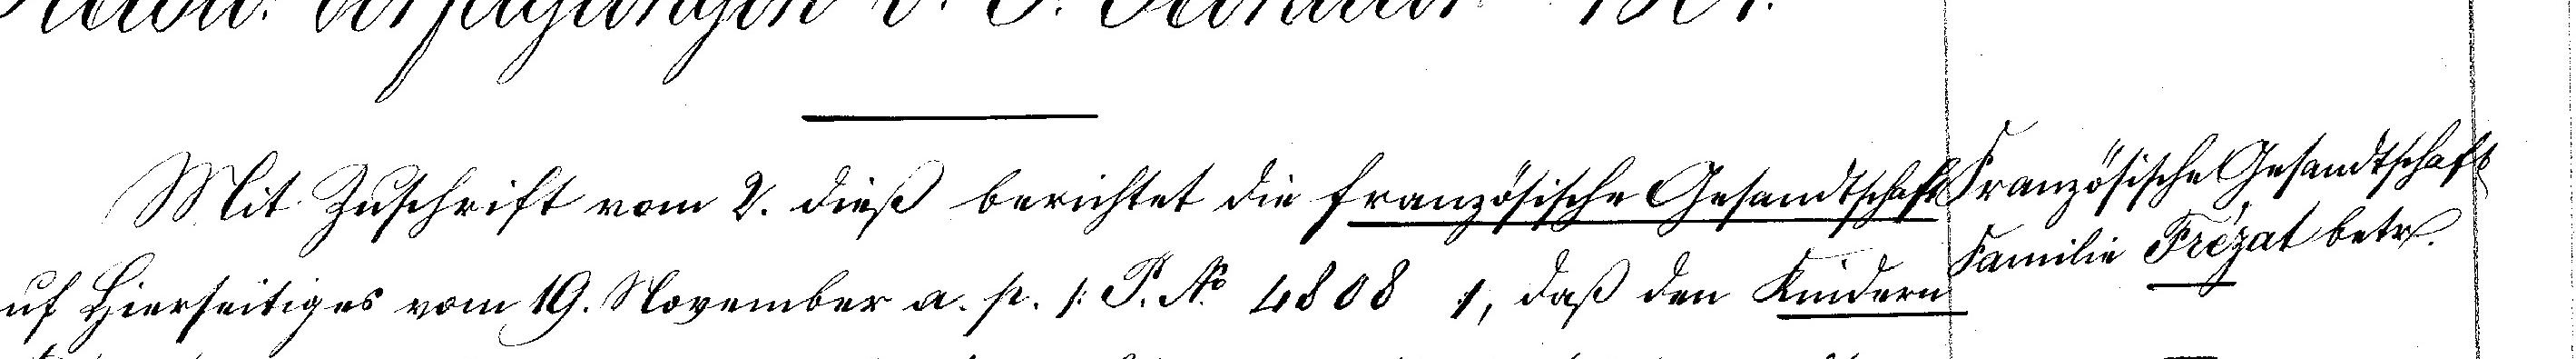 Mit Zuschrift vom 2. dieß berichtet die französische Gesandtschaft
uf Hierseitiges vom 19. November a. p. /: P. No 4808 :/, daß den Kindern
Französische Gesandtschaft
Familie Frézat betr.